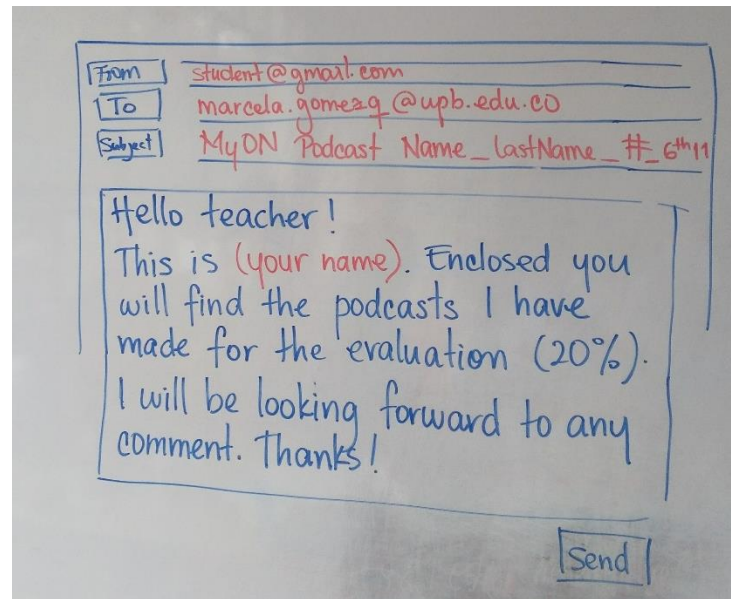 From student@gmail.com
To marcela.gomezq@upb.edu.co
Subject MyON Podcast Name_LastName_#_6th11
Hello teacher!
This is (your name). Enclosed you
will find the podcasts I have
made for the evaluation (20%).
I will be looking forward to any
comment. Thanks!
Send